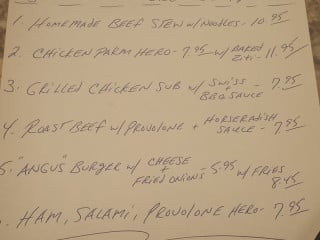 1. HOMEMADE BEEF STEW w/ NOODLES - 10.95
2. CHICKEN PARM HERO - 7.95 w/ BAKED ZITI - 11.95
3. GRILLED CHICKEN SUB w/ SWISS + BBQ SAUCE - 7.95
4. ROAST BEEF w/ PROVOLONE + HORSERADISH SAUCE - 7.95
5. "ANGUS" BURGER w/ CHEESE + FRIED ONIONS - 5.95 w/ FRIES 8.45
HAM, SALAMI, PROVOLONE HERO - 7.95